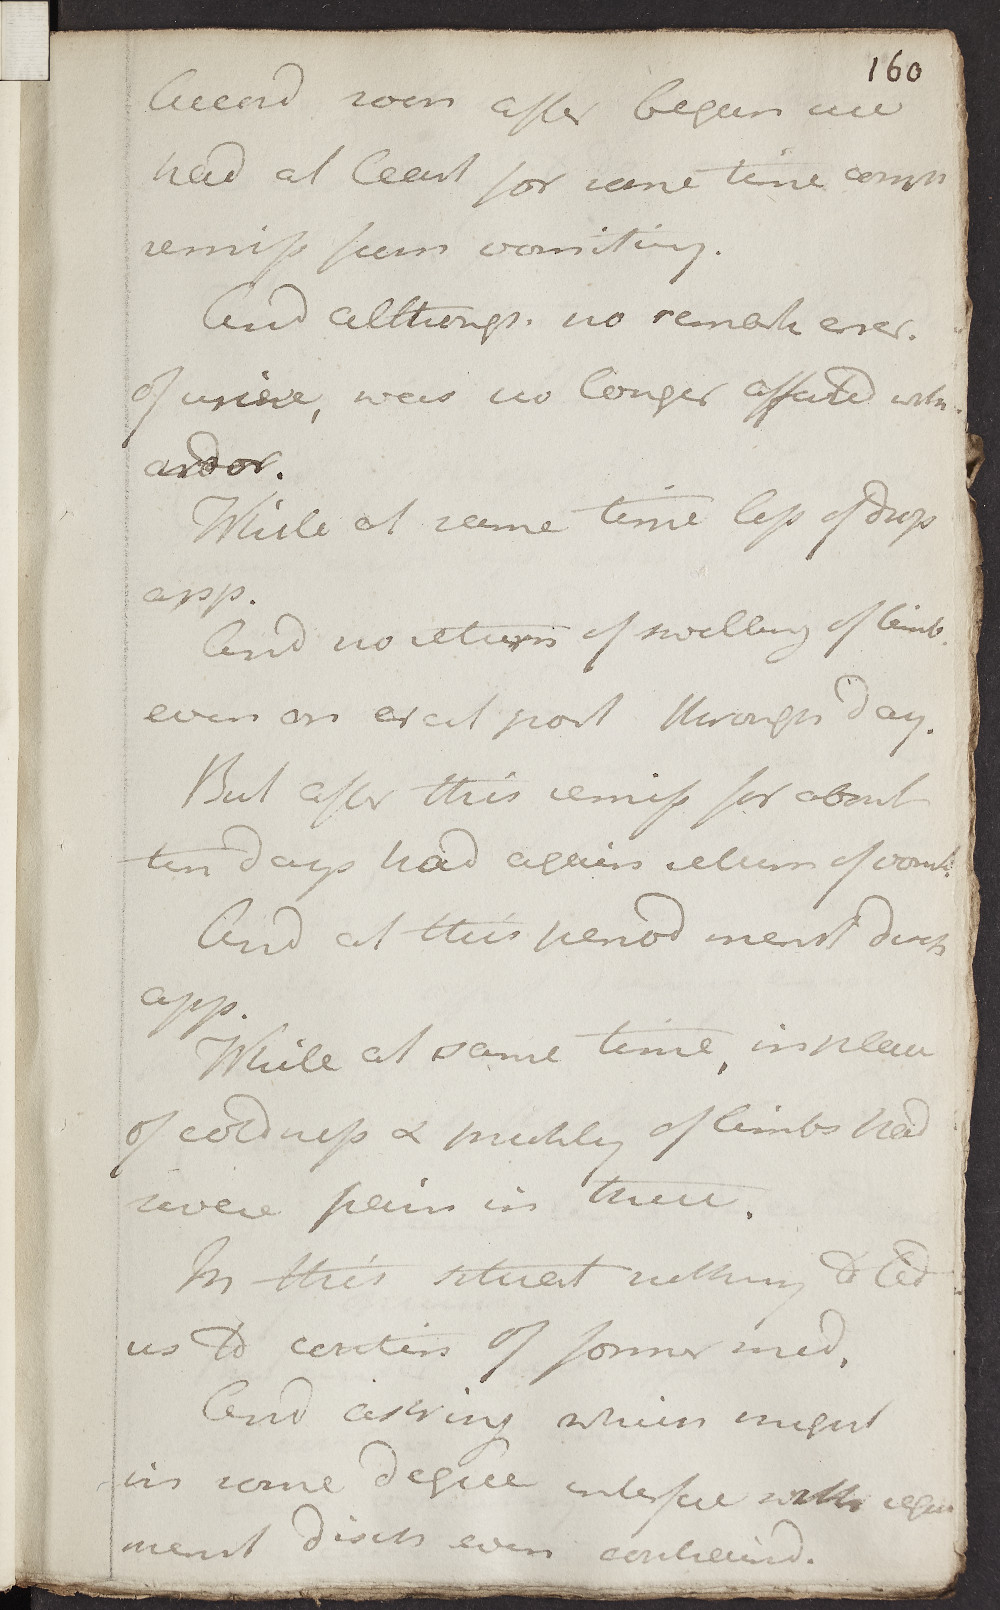 160
Accord soon after begun use
had at least for some time comp
remiss from vomiting.
And although. no remark
of urine, was no longer affected with
ardor.
While at same time less of drop
app.
And no return of swelling of limb.
even on erect post through day.
But after this remiss for about
ten days had again return of vomit.
And at this period menst disch
app.
While at same time, in place
of coldness & prickling of limbs had
severe pain in them.
In this situat nothing to led
us to contin of former med.
And as
in some degree interfere with regu
menst disch even contraind.